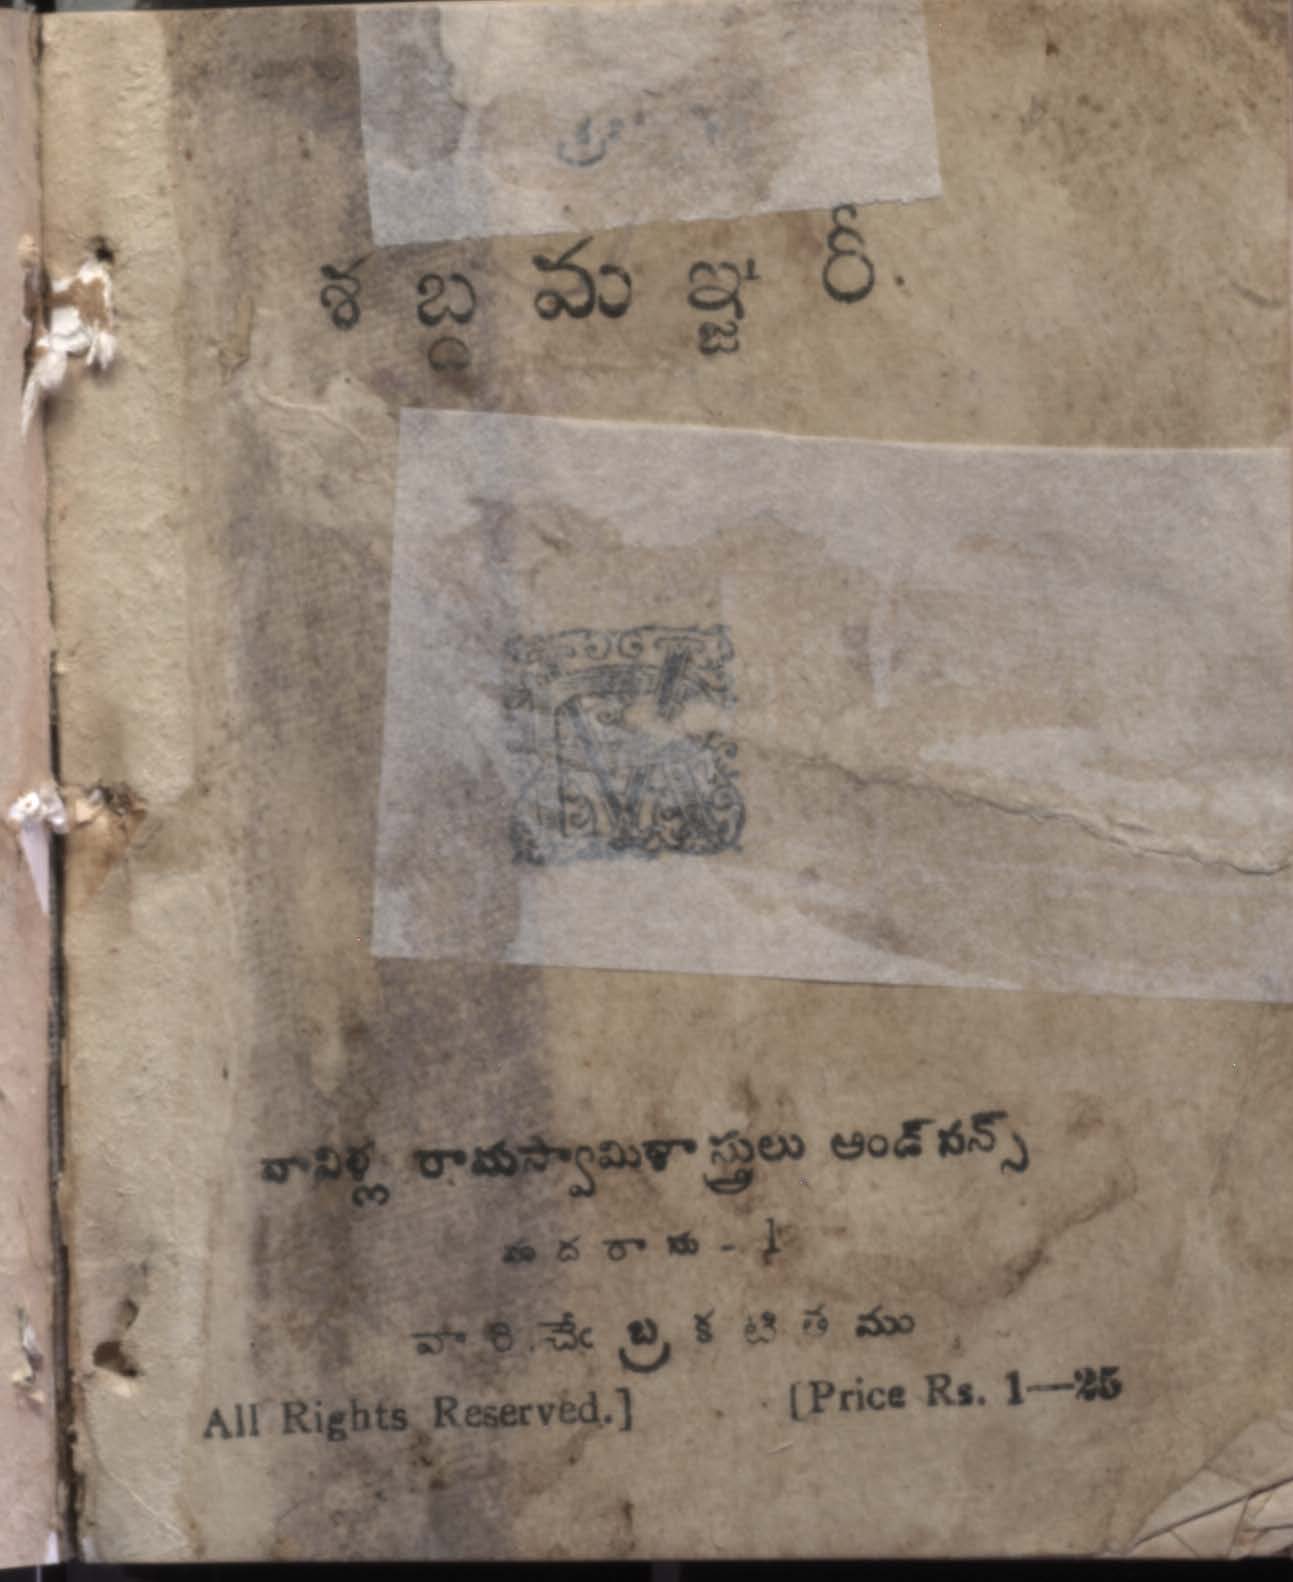 శబ్దమఞ్జరీ.
వావిళ్ల రామస్వామిశాస్త్రులు అండ్ సన్స్
మదరాసు - 1
వారిచేఁ బ్రకటితము
All Rights Reserved.] [Price Rs. 1—25